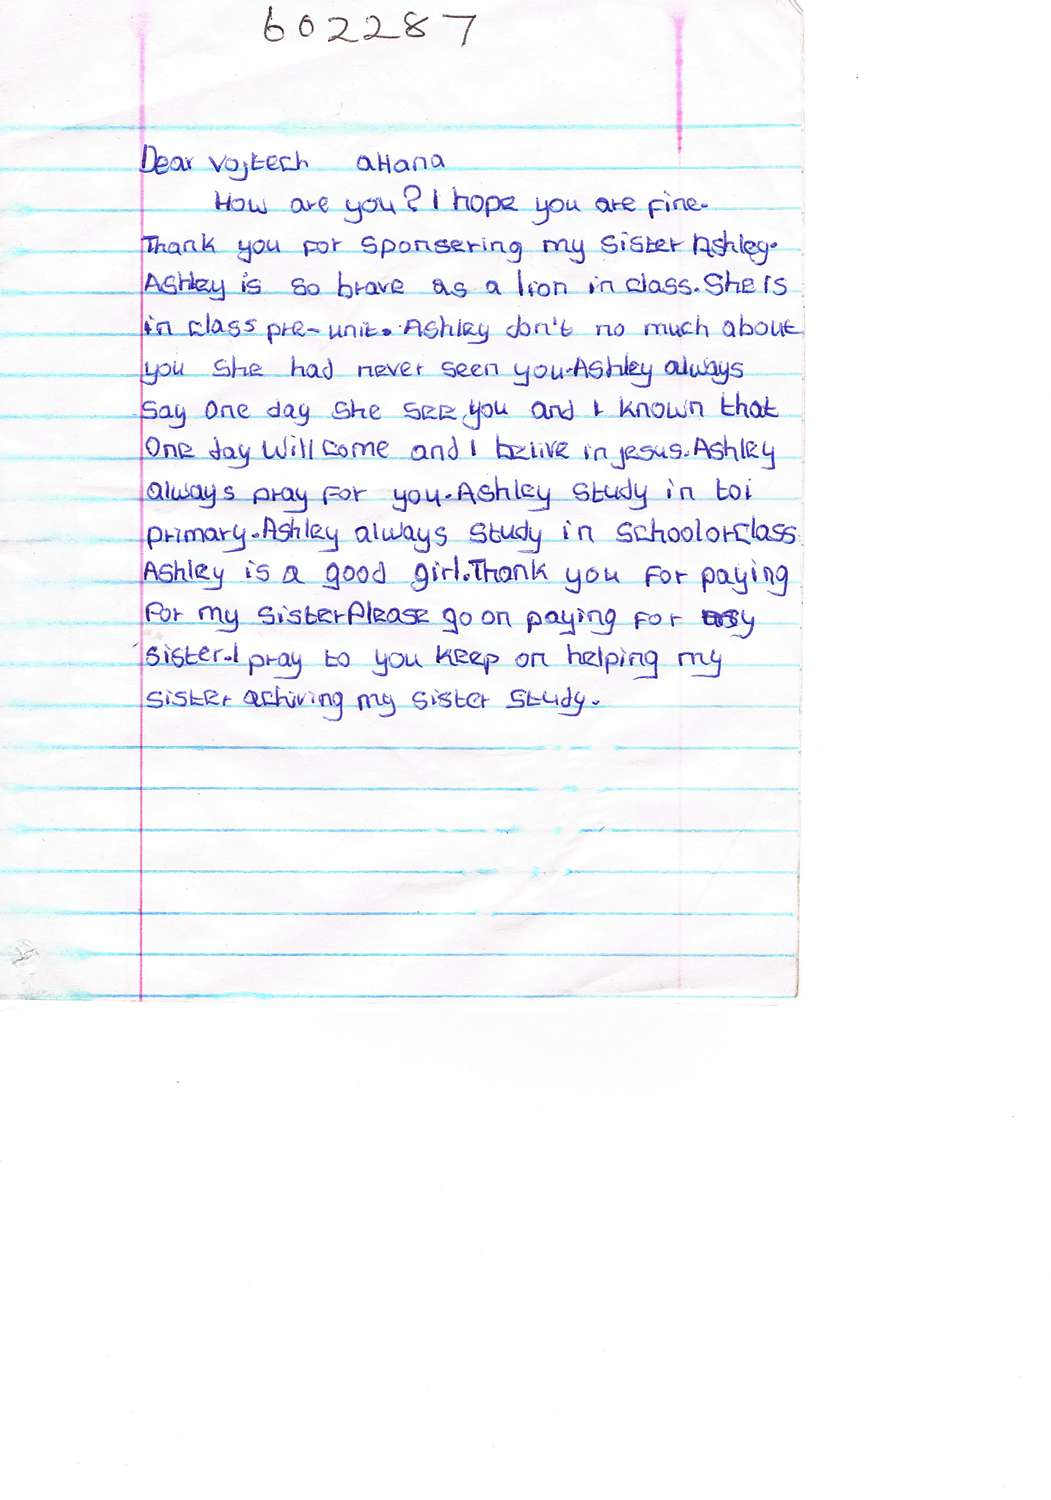 602287
Dear vojtech aHana
How are you? I hope you are fine.
Thank you for sponsering my sister Ashley.
Ashley is so brave as a lion in class. She is
in class pre-unit. Ashley don't no much about
you she had never seen you. Ashley always
say one day she see you and I known that
one day will come and I belive in jesus. Ashley
always pray for you. Ashley study in toi
primary. Ashley always study in school or class.
Ashley is a good girl. Thank you for paying
for my sister Please go on paying for my
sister. I pray to you keep on helping my
sister achiving my sister study.